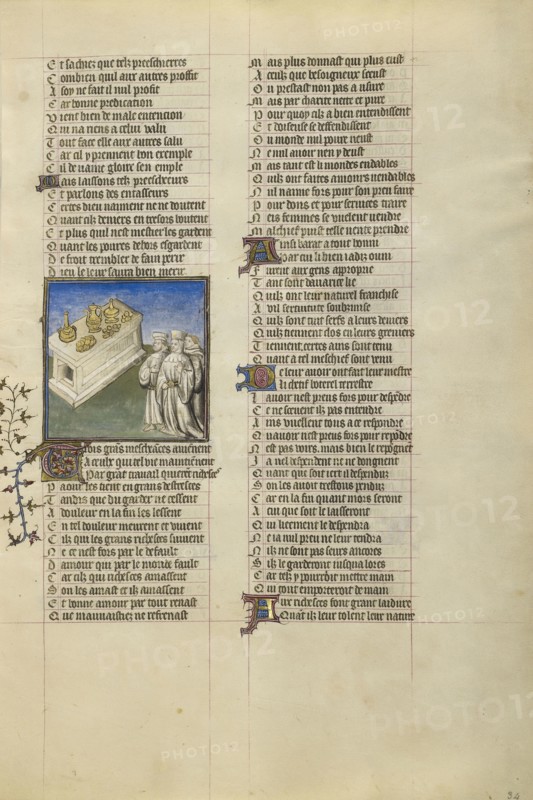 Et sachiez que telz preescherres
Combien quil aux autres proffit
A soy ne fait il nul profit
Car bonne predication
Vient bien de male entencion
Qui na riens a celui valu
Tout face elle aux autres salu
Car cil y prennent bon exemple
Cil de vaine gloire sen emple
Mais laissons telz prescheeurs
Et parlons des entasseurs
Certes dieu naiment ne ne doutent
Quant telz deniers en tresors boutent
Et plus quil nest mestier les gardent
Quant les poures dehors esgardent
De froit trembler de fain perir
Dieu le leur saura bien merir
Trois grans mescheances auiennent
A ceulx qui tel vie maintiennent
Par grant trauail quierent richesces
Paour les tient en grans destresces
Tandis que du garder ne cessent
A douleur en la fin les lessent
En tel douleur meurent et viuent
Cilz qui les grans richesces suiuent
Ne ce nest fors par le default
Damour qui par le monde fault
Car cilz qui richesces amassent
Son les amast et ilz amassent
Et bonne amour par tout regnast
Que mauuaistiez ne refrenast
Mais plus donnast qui plus eust
A ceulz que besoigneux sceust
Ou prestast non pas a usure
Mais par charite nette et pure
Pour quoy cilz a bien entendissent
Et doiseuse se deffendissent
Ou monde nul poure neust
Ne nul auoir nen y deust
Mais tant est li mondes endables
Quilz ont faites amours vendables
Nul naime fors pour son preu faire
Pour dons et pour seruices traire
Neis femmes se vuelent vendre
Mal chief puist telle vente prendre
Ainsi barat a tout honni
Par cui li bien iadiz onni
Furent aux gens approprie
Tant sont dauarice lie
Quilz ont leur naturel franchise
A vil seruitute soubzmise
Quilz sont tuit serfs a leurs deniers
Quilz tiennent clos en leurs greniers
Tiennent certes ains sont tenu
Quant a tel meschief sont venu
De leur auoir ont fait leur mestre
Li chetif boterel terrestre
Lauoir nest preus fors pour despendre
Ce ne sceuent ilz pas entendre
Ains vuellent tous a ce respondre
Quauoir nest preus fors pour repondre
Nest pas voirs mais bien le repoignent
Ja nel despendent ne ne doignent
Quant que soit iert il despenduz
Son les auoit trestous penduz
Car en la fin quant mors seront
A cui que soit le lairont
Qui liement le despendra
Ne ia nul preu ne leur rendra
Nilz ne sont pas seurs ancores
Silz le garderont iusqua lores
Car telz y pourroit mettre main
Qui tout emporteroit demain
Aux richesces font grant laidure
Quant ilz leur tolent leur nature
34
PHOTO12